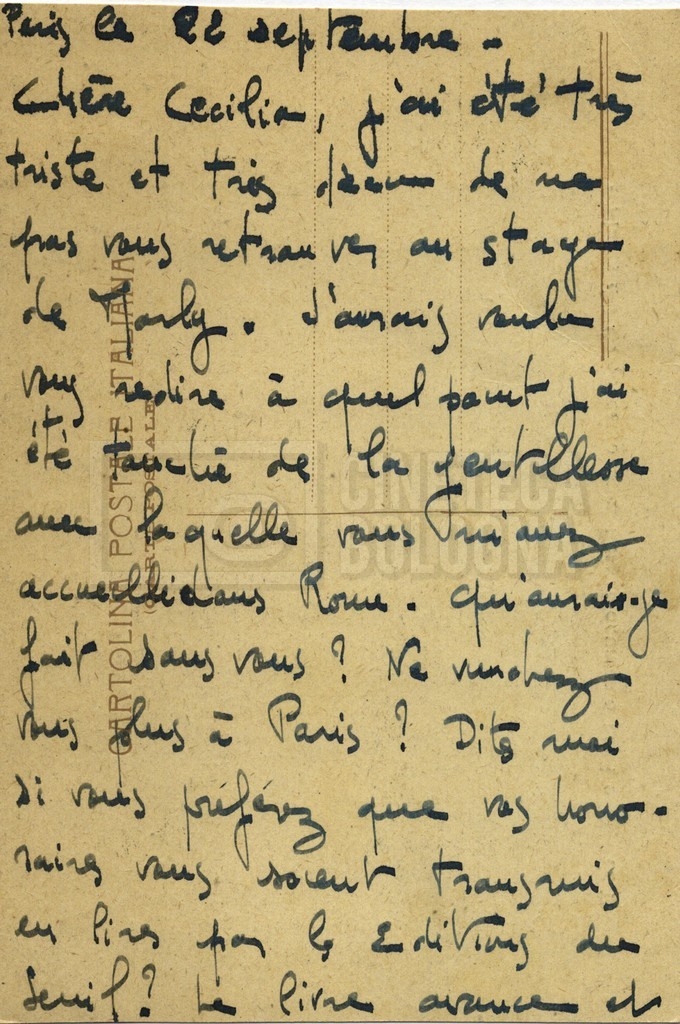 Paris le 22 septembre.
Chère Cecilia, j'ai été très
triste et très déçu de ne
pas vous retrouver au stage
de Marly. J'aurais voulu
vous redire à quel point j'ai
été touché de la gentillesse
avec laquelle vous m'avez
accueilli dans Rome. Qu'aurais-je
fait sans vous ? Ne viendrez
vous plus à Paris ? Dites moi
si vous préférez que vos hono-
raires vous soient transmis
en lires par les Editions du
Seuil ? Le livre avance et
CARTOLINA POSTALE ITALIANA
(CARTE POSTALE)
CINETECA
BOLOGNA